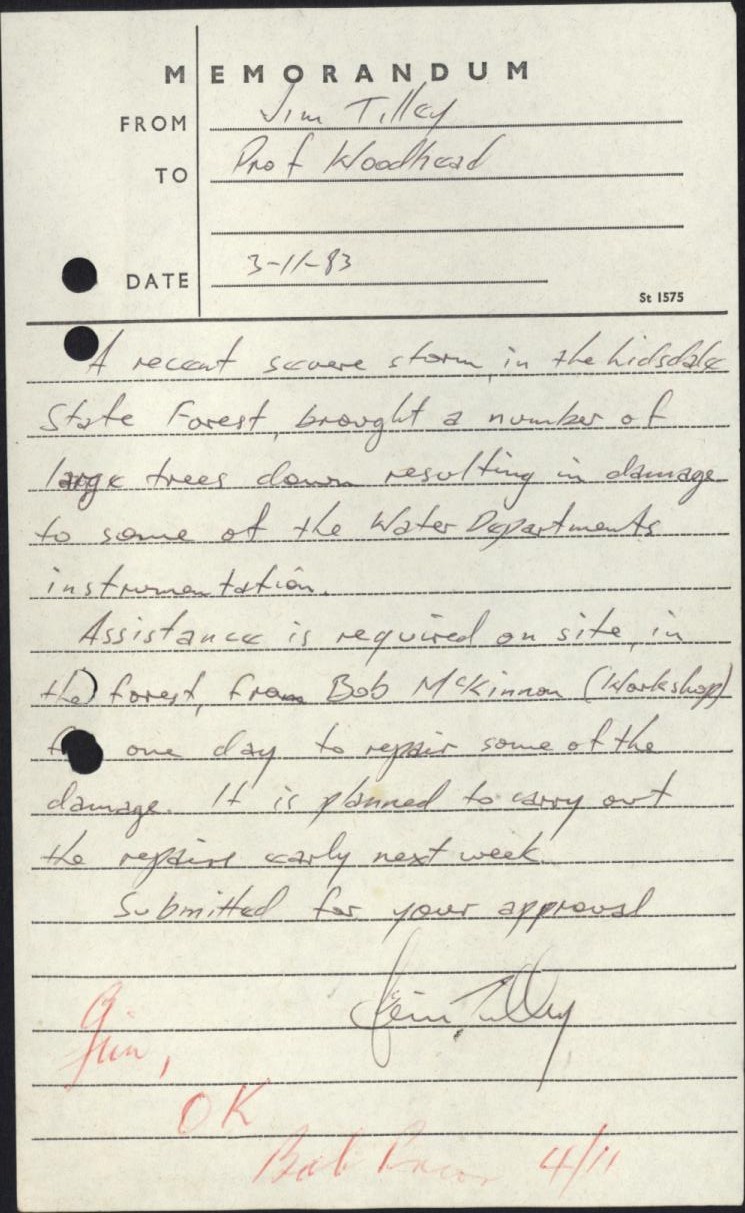 MEMORANDUM
FROM Jim Tilley
TO Prof Woodhead
DATE 3-11-83
St 1575
A recent severe storm, in the Lidsdale
State Forest, brought a number of
large trees down resulting in damage
to some of the Water Departments
instrumentation.
Assistance is required on site, in
the forest, from Bob McKinnon (Workshop)
one day to repair some of the
damage. It is planned to carry out
the repairs early next week.
Submitted for your approval
Jim Tilley
Jim,
OK
Bob 4/11